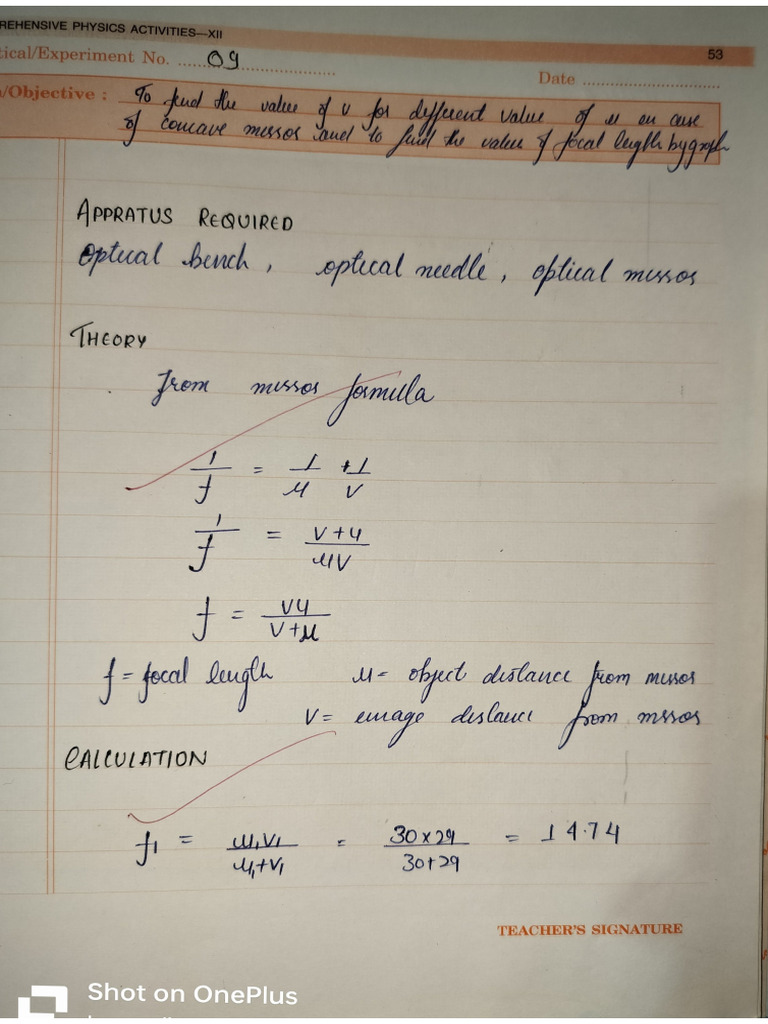 REHENSIVE PHYSICS ACTIVITIES—XII
53
tical/Experiment No. ...... 09 ......................
Date ..............................
/Objective : To find the value of v for different value of u in case
of concave mirror and to find the value of focal length by graph
APPRATUS REQUIRED
Optical bench, optical needle, optical mirror
THEORY
From mirror formula
1/f = 1/u + 1/v
1/f = v+u/uv
f = vu/v+u
f = focal length u = object distance from mirror
v = image distance from mirror
CALCULATION
f1 = u1v1/u1+v1 = 30×29/30+29 = 14.74
TEACHER'S SIGNATURE
Shot on OnePlus